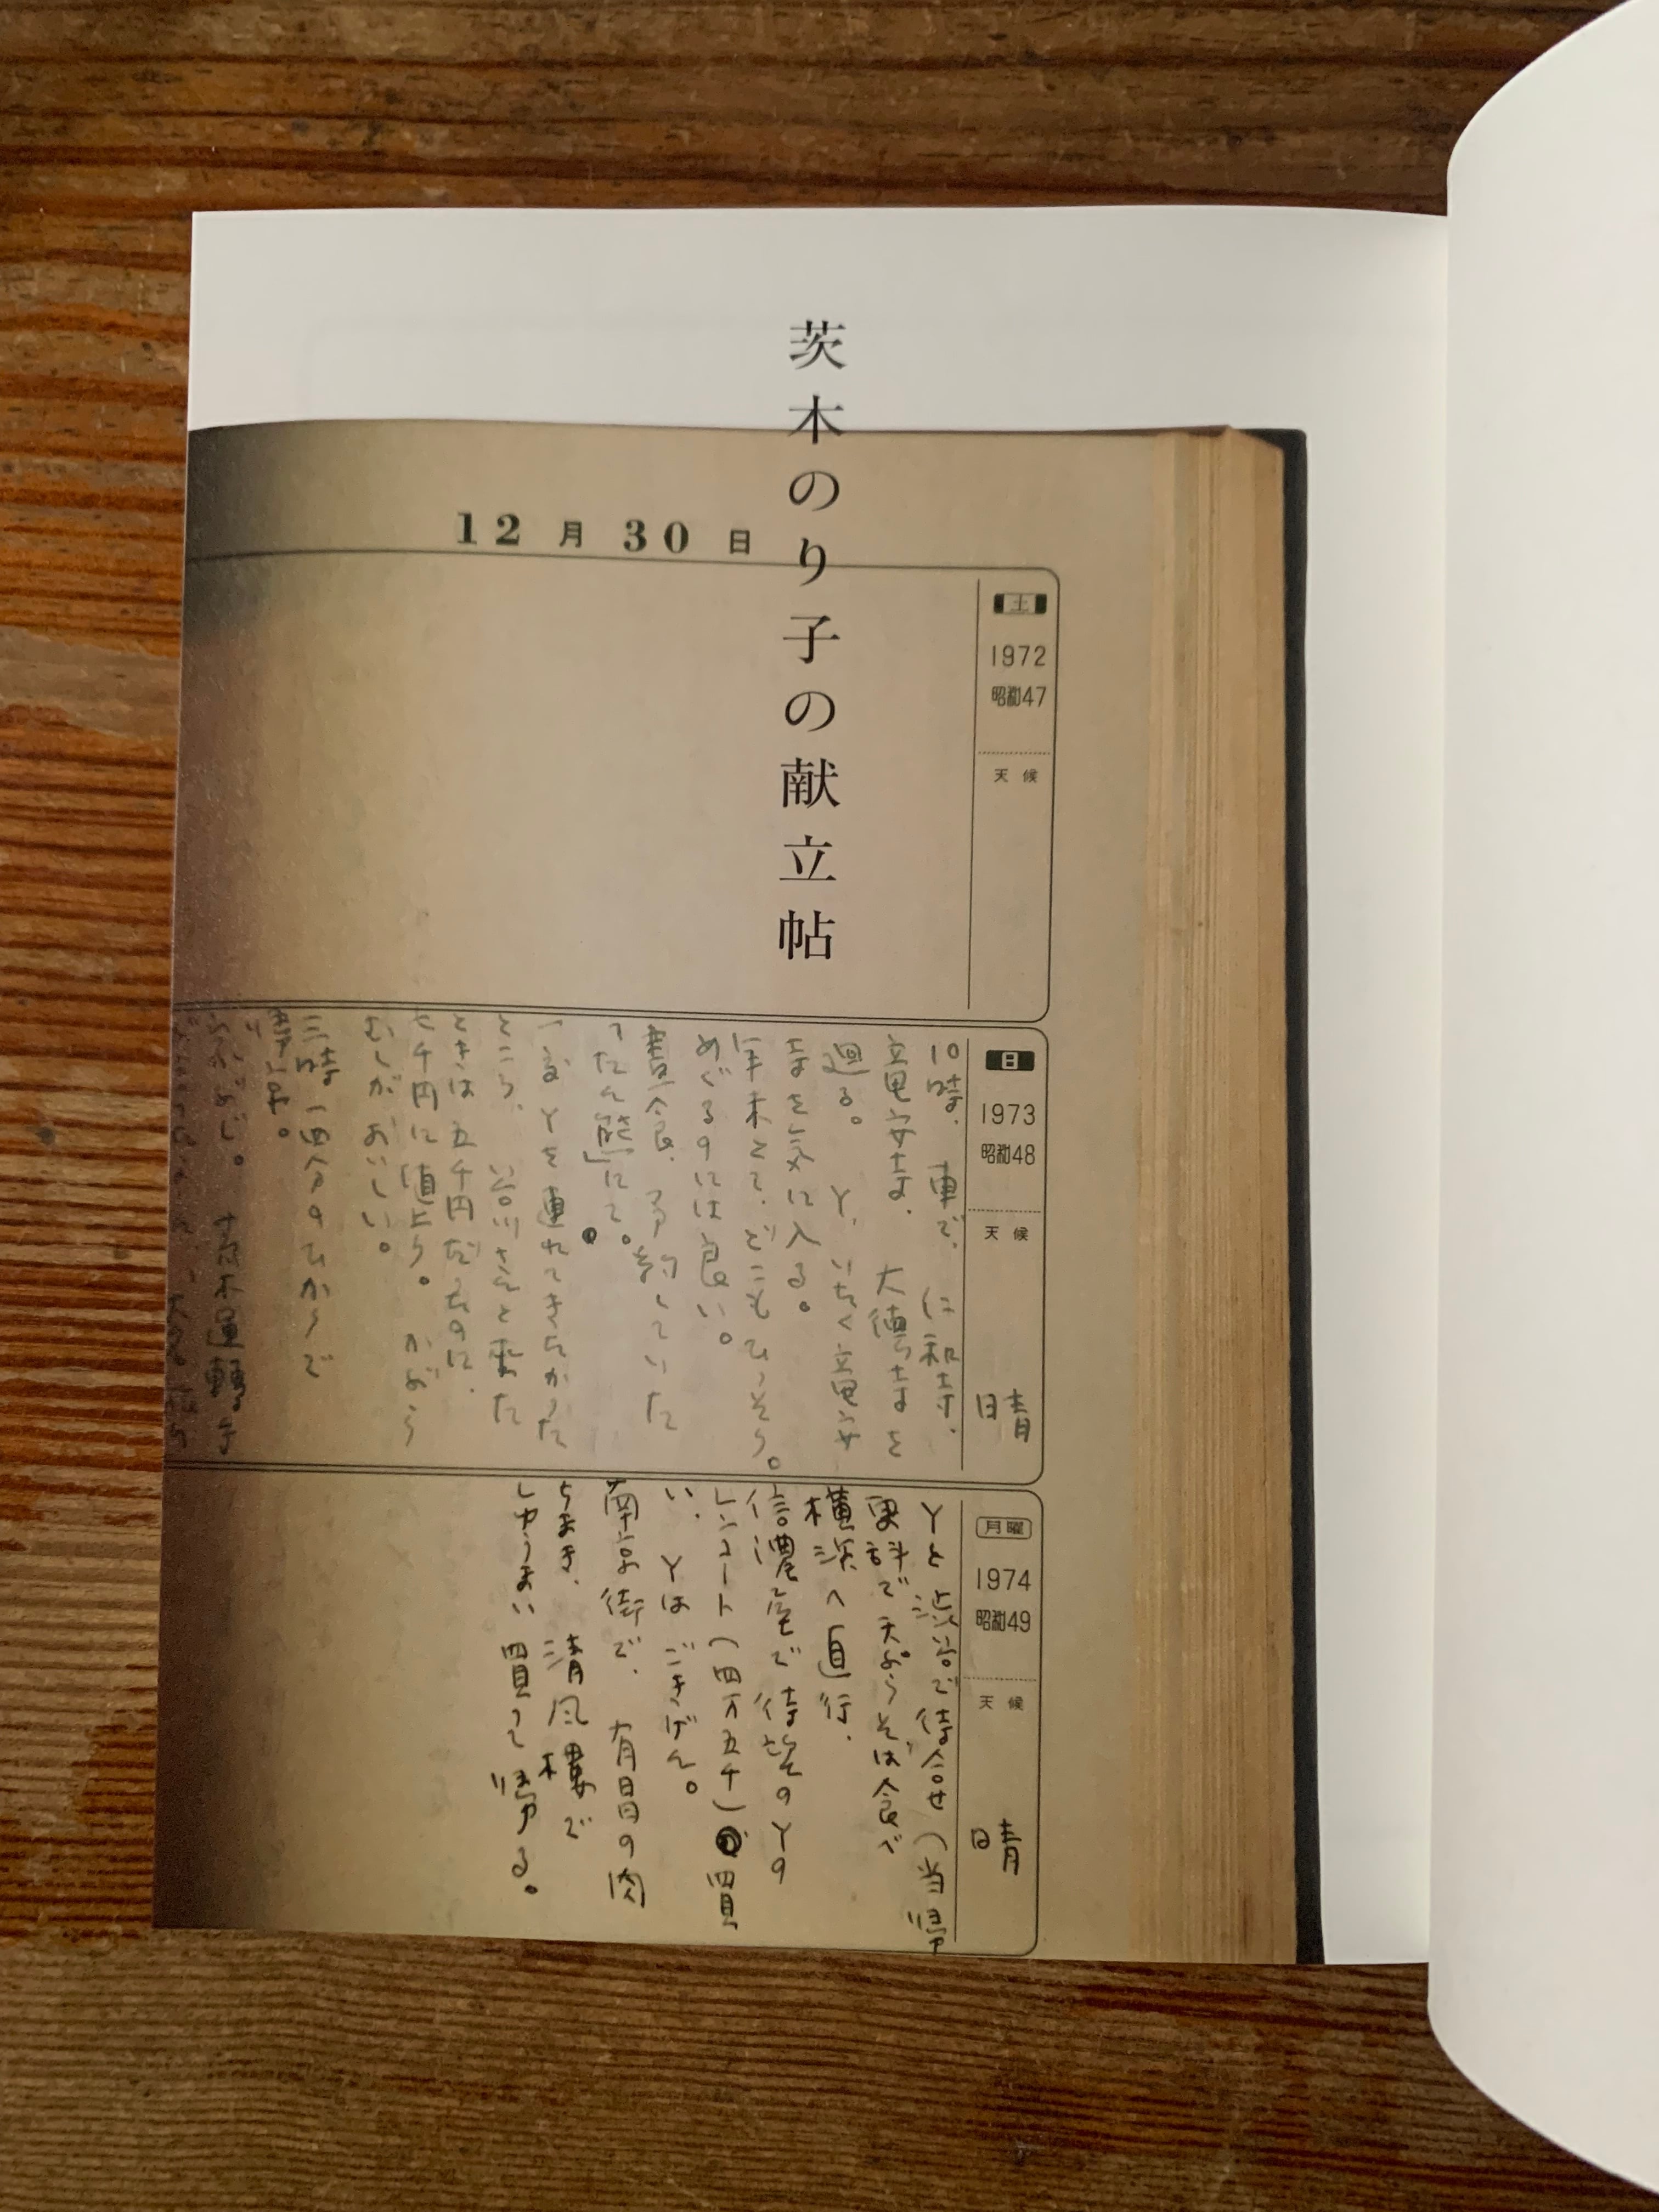 茨木のり子の献立帖
12月30日
土
1972
昭和47
天候
日
1973
昭和48
天候
晴
10時、車で、仁和寺、
竜安寺、大徳寺を
廻る。Y、いたく竜安
寺を気に入る。
年末とて、どこもひっそり。
めぐるのには良い。
昼食、予約していた
「たん熊」にて。
一度Yを連れてきたかった
ところ、谷川さんと来た
ときは五千円だったのに、
七千円に値上り。かぶら
むしがおいしい。
三時一四分のひかりで
帰京。
運転手
月曜
1974
昭和49
天候
晴
Yと渋谷で待合せ（当帰
更科で天ぷらそば食べ
横浜へ直行、
信濃屋で待望のYの
レンコート（四万五千）買
い、Yはごきげん。
南京街で、有昌の肉
ちまき、清風楼で
しゅうまい買って帰る。